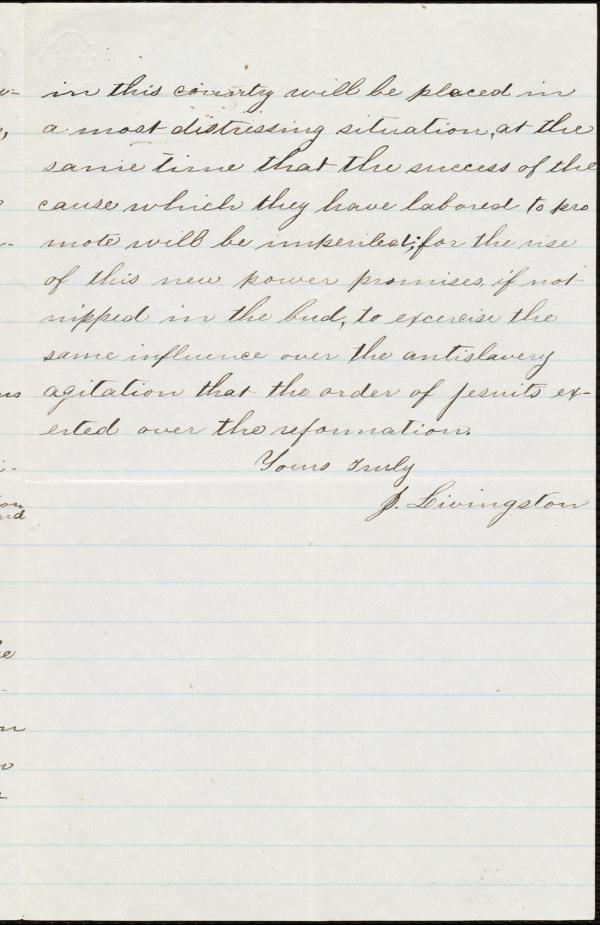 in this country will be placed in
a most distressing situation, at the
same time that the success of the
cause which they have labored to pro
mote will be imperiled; for the rise
of this new power promises, if not
nipped in the bud, to excercise the
same influence over the antislavery
agitation that the order of Jesuits ex-
erted over the reformation.
Yours truly
J. Livingston